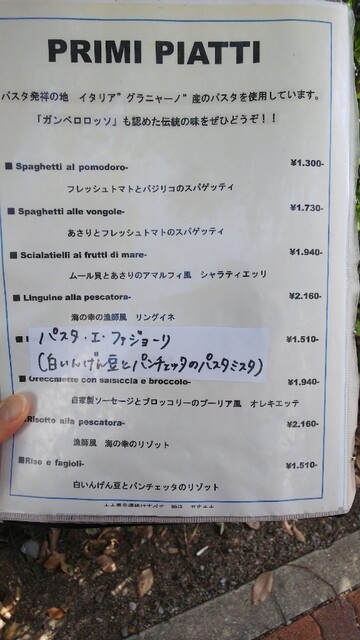 PRIMI PIATTI
パスタ発祥の地 イタリア"グラニャーノ"産のパスタを使用しています。
「ガンベロロッソ」も認めた伝統の味をぜひどうぞ!!
■ Spaghetti al pomodoro- ¥1.300-
フレッシュトマトとバジリコのスパゲッティ
■ Spaghetti alle vongole- ¥1.730-
あさりとフレッシュトマトのスパゲッティ
■ Scialatielli ai frutti di mare- ¥1.940-
ムール貝とあさりのアマルフィ風 シャラティエッリ
■ Linguine alla pescatora- ¥2.160-
海の幸の漁師風 リングイネ
■ ¥1.510-
パスタ・エ・ファジョーリ
(白いんげん豆とパンチェッタのパスタミスタ)
Orecchiette con salsiccia e broccolo- ¥1.940-
自家製ソーセージとブロッコリーのプーリア風 オレキエッテ
Risotto alla pescatora- ¥2.160-
漁師風 海の幸のリゾット
■Riso e fagioli- ¥1.510-
白いんげん豆とパンチェッタのリゾット